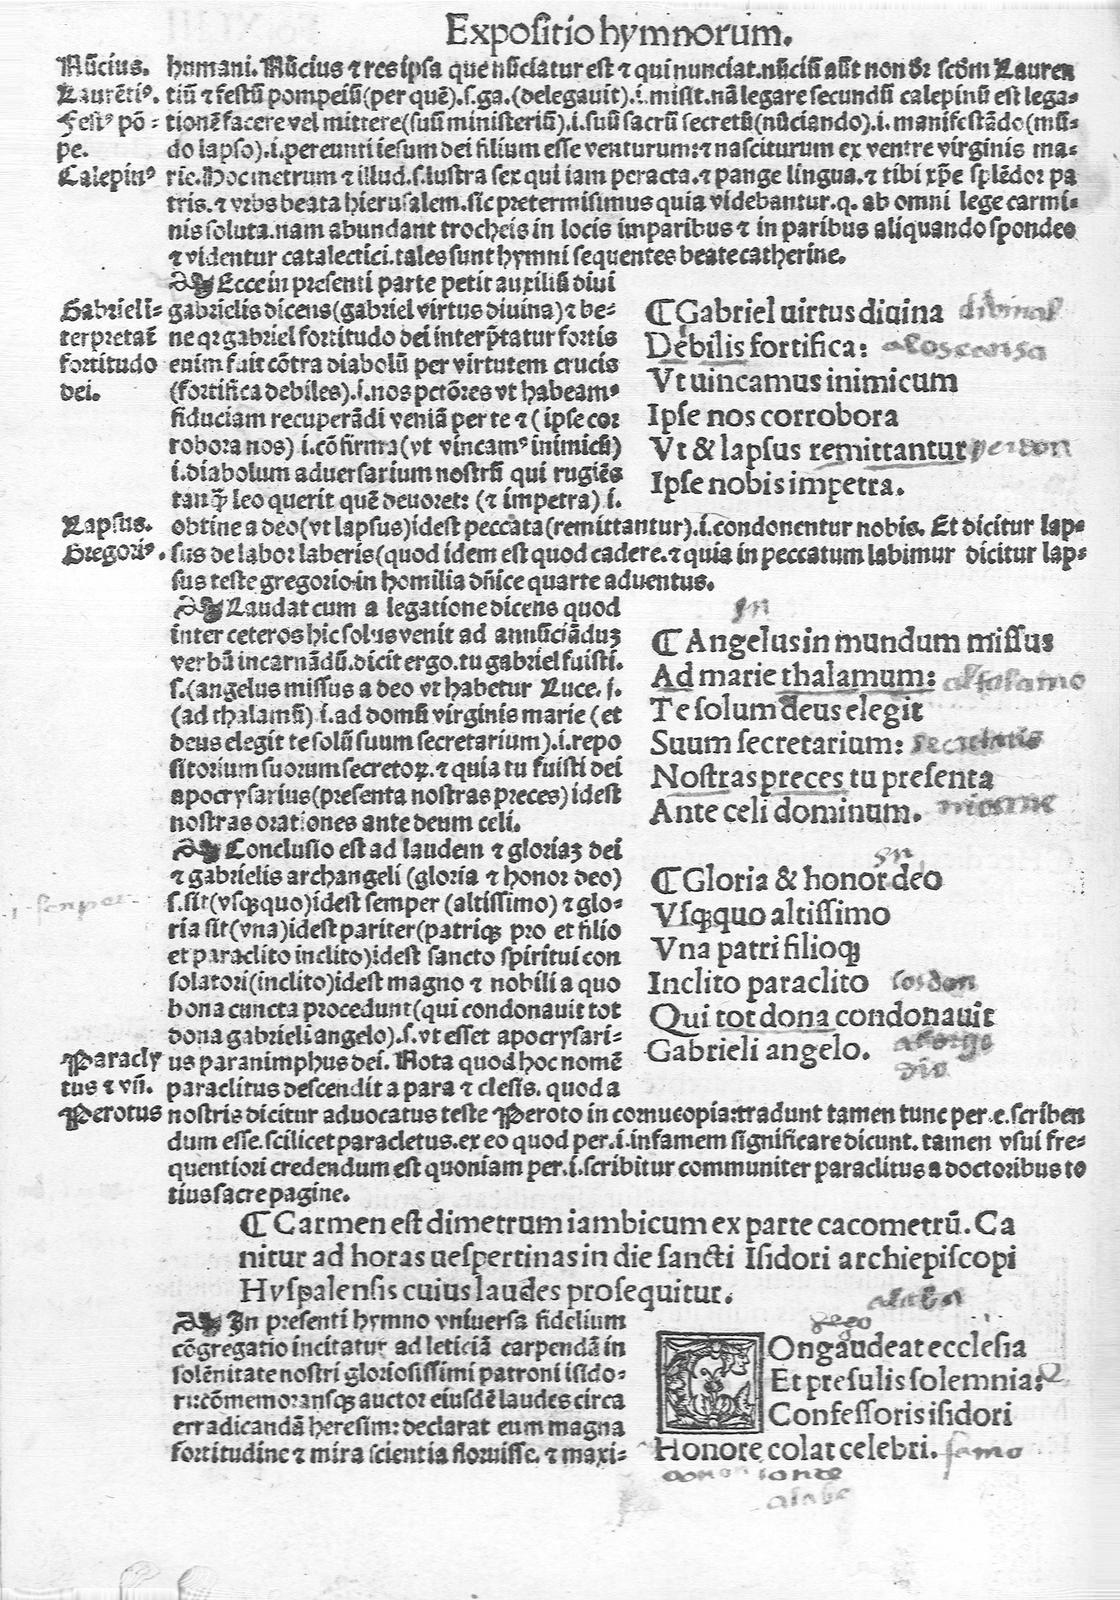 Expositio hymnorum.
Nũcius.
Laurẽtiꝰ.
Festꝰ põ-
pe.
Calepinꝰ
humani. Nũcius ⁊ res ipsa que nũciatur est ⁊ qui nunciat. nũciũ aũt non dr̃ scd̃m Lauren
tiũ ⁊ festũ pompeiũ (per quẽ).s.ga.(delegauit).i.misit.nã legare secundũ calepinũ est lega-
tionẽ facere vel mittere (suũ ministeriũ).i.suũ sacrũ secretũ (nũciando).i. manifestãdo (mũ-
do lapso).i.pereunti iesum dei filium esse venturum: ⁊ nasciturum ex ventre virginis ma-
rie. Hoc metrum ⁊ illud.s.lustra sex qui iam peracta. ⁊ pange lingua. ⁊ tibi xp̃e splẽdor pa
tris. ⁊ vrbs beata hierusalem. sic pretermisimus quia videbantur .q. ab omni lege carmi-
nis soluta. nam abundant trocheis in locis imparibus ⁊ in paribus aliquando spondeo
⁊ videntur catalectici. tales sunt hymni sequentes beate catherine.
Gabriel i-
terpretat̃
fortitudo
dei.
Ecce in presenti parte petit auxiliũ diui
gabrielis dicens (gabriel virtus diuina) ⁊ be-
ne qr gabriel fortitudo dei interp̃tatur fortis
enim fuit cõtra diabolũ per virtutem crucis
(fortifica debiles).i.nos pctõres vt habeamꝰ
fiduciam recuperãdi veniã per te ⁊ (ipse cor
robora nos) i.cõfirma (vt vincamꝰ inimicũ)
i.diabolum aduersarium nostrũ qui rugiẽs
tanq̃ leo querit quẽ deuoret: (⁊ impetra) i.
¶ Gabriel uirtus diuina
Debilis fortifica:
Vt uincamus inimicum
Ipse nos corrobora
Vt & lapsus remittantur
Ipse nobis impetra.
Lapsus.
Gregoriꝰ.
obtine a deo (vt lapsus) idest peccata (remittantur).i.condonentur nobis. Et dicitur lap-
sus de labor laberis (quod idem est quod cadere. ⁊ quia in peccatum labimur dicitur lap-
sus teste gregorio in homilia dñice quarte aduentus.
Laudat cum a legatione dicens quod
inter ceteros hic solus venit ad annũciãduʒ
verbũ incarnãdũ. dicit ergo. tu gabriel fuisti.
s.(angelus missus a deo vt habetur Luce. j.
(ad thalamũ) i.ad domũ virginis marie (et
deus elegit te solũ suum secretarium).i.repo
sitorium suorum secretoꝝ. ⁊ quia tu fuisti dei
apocrysarius (presenta nostras preces) idest
nostras orationes ante deum celi.
In
¶ Angelus in mundum missus
Ad marie thalamum:
Te solum deus elegit
Suum secretarium:
Nostras preces tu presenta
Ante celi dominum.
Conclusio est ad laudem ⁊ gloriaʒ dei
⁊ gabrielis archangeli (gloria ⁊ honor deo)
s.sit (vsqꝫquo) idest semper (altissimo) ⁊ glo-
ria sit (vna) idest pariter (patriqꝫ pro et filio
et paraclito inclito) idest sancto spiritui con
solatori (inclito) idest magno ⁊ nobili a quo
bona cuncta procedunt (qui condonauit tot
dona gabrieli angelo).s.vt esset apocrysari-
us paranimphus dei. Nota quod hoc nomẽ
paraclitus descendit a para ⁊ clesis. quod a
semper
¶ Gloria & honor deo
Vsqꝫquo altissimo
Vna patri filioqꝫ
Inclito paraclito
Qui tot dona condonauit
Gabrieli angelo.
Paracly
tus ⁊ vñ.
Perotus
nostris dicitur aduocatus teste Peroto in cornucopia: tradunt tamen tunc per .e. scriben
dum esse. scilicet paracletus. ex eo quod per .i. infamem significare dicunt. tamen vsui fre-
quentiori credendum est quoniam per .i. scribitur communiter paraclitus a doctoribus to
tius sacre pagine.
¶ Carmen est dimetrum iambicum ex parte cacometrũ. Ca
nitur ad horas uespertinas in die sancti Isidori archiepiscopi
Hyspalensis cuius laudes prosequitur.
In presenti hymno vniuersa fidelium
cõgregatio incitatur ad leticiã carpendã in
solẽnitate nostri gloriosissimi patroni isido-
ri: cõmemoransqꝫ auctor eiusdẽ laudes circa
erradicandã heresim: declarat eum magna
fortitudine ⁊ mira scientia floruisse. ⁊ maxi-
COngaudeat ecclesia
Et presulis solemnia:
Confessoris isidori
Honore colat celebri.